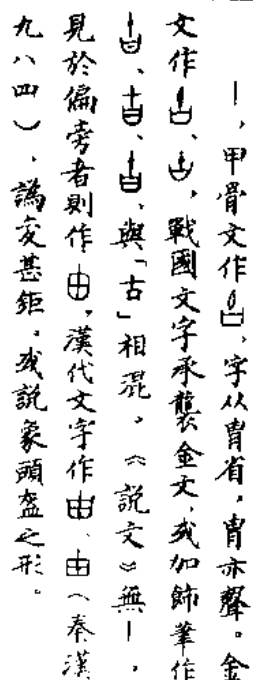 ｜，甲骨文作，字从冑省，冑亦聲。金
文作、，戰國文字承襲金文，或加飾筆作
、、，與「古」相混，《說文》無｜，
見於偏旁者則作由，漢代文字作由、由（秦漢
九八四），譌變甚鉅。或說象頭盔之形。